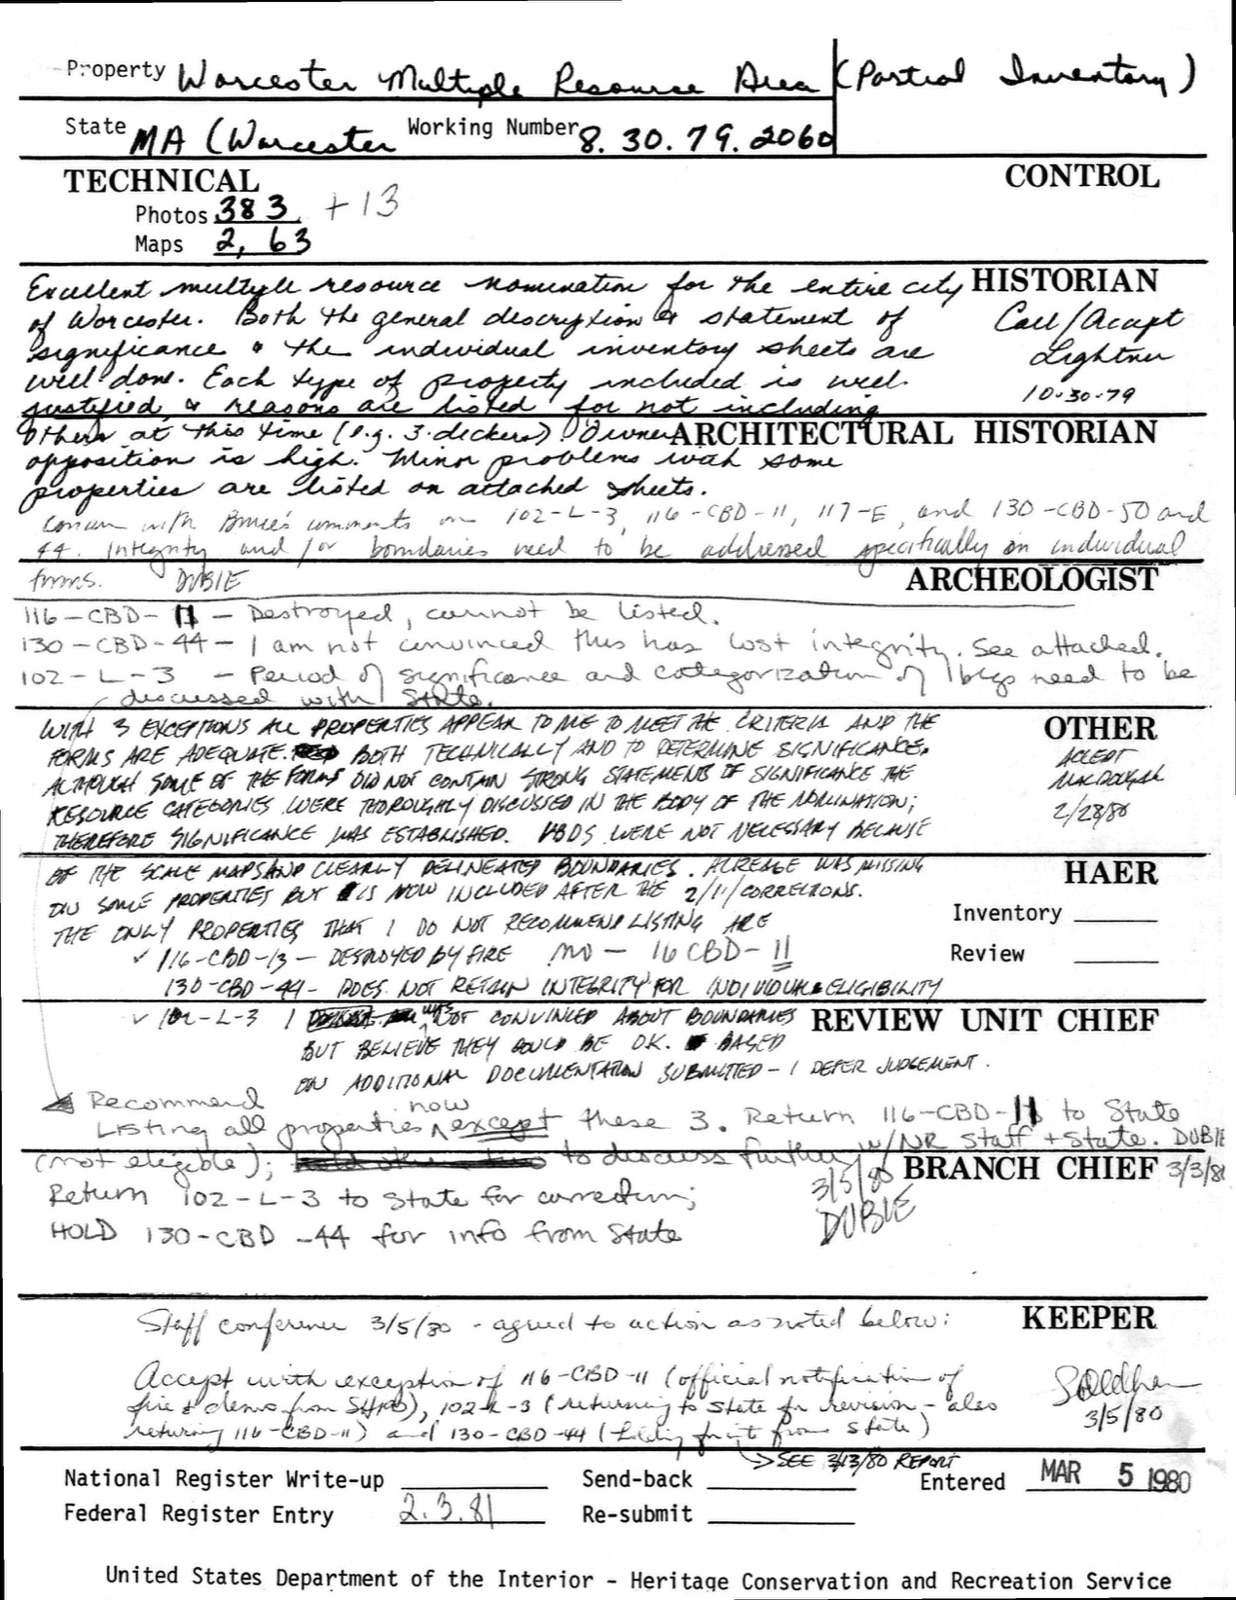 Property Worcester Multiple Resource Area (Partial Inventory)
State MA (Worcester Working Number 8.30.79.2060
TECHNICAL
CONTROL
Photos 383 + 13
Maps 2, 63
Excellent multiple resource nomination for the entire city
HISTORIAN
of Worcester. Both the general description & statement of
Call/Accept
significance & the individual inventory sheets are
Lightner
well done. Each type of property included is well
10-30-79
justified & reasons are listed for not including
others at this time (e.g. 3-deckers). Owner
ARCHITECTURAL HISTORIAN
opposition is high. Minor problems with some
properties are listed on attached sheets.
Concur with Bruce's comments on 102-L-3, 116-CBD-11, 117-E, and 130-CBD-50 and
44. Integrity and/or boundaries need to be addressed specifically on individual
forms. DUBIE
ARCHEOLOGIST
116-CBD-11 - Destroyed, cannot be listed.
130-CBD-44 - I am not convinced this has lost integrity. See attached.
102-L-3 - Period of significance and categorization of bldgs need to be
discussed with State.
WITH 3 EXCEPTIONS ALL PROPERTIES APPEAR TO ME TO MEET THE CRITERIA AND THE
OTHER
FORMS ARE ADEQUATE BOTH TECHNICALLY AND TO DETERMINE SIGNIFICANCE.
ACCEPT
ALTHOUGH SOME OF THE FORMS DID NOT CONTAIN STRONG STATEMENTS OF SIGNIFICANCE THE
MACDOUGAL
RESOURCE CATEGORIES WERE THOROUGHLY DISCUSSED IN THE BODY OF THE NOMINATION;
2/28/80
THEREFORE SIGNIFICANCE WAS ESTABLISHED. VBDS WERE NOT NECESSARY BECAUSE
OF THE SCALE MAPS AND CLEARLY DELINEATED BOUNDARIES. ACREAGE WAS MISSING
HAER
ON SOME PROPERTIES BUT IS NOW INCLUDED AFTER THE 2/11/ CORRECTIONS.
Inventory
THE ONLY PROPERTIES THAT I DO NOT RECOMMEND LISTING ARE
✓ 116-CBD-13 - DESTROYED BY FIRE no - 116 CBD-11
Review
130-CBD-44 - DOES NOT RETAIN INTEGRITY FOR INDIVIDUAL ELIGIBILITY
✓ 102-L-3 I was NOT CONVINCED ABOUT BOUNDARIES
REVIEW UNIT CHIEF
BUT BELIEVE THEY COULD BE OK. BASED
ON ADDITIONAL DOCUMENTATION SUBMITTED - I DEFER JUDGEMENT.
Recommend
Listing all properties now except these 3. Return 116-CBD-11 to State
(not eligible); to discuss further w/NR Staff + State. DUBIE
BRANCH CHIEF 3/3/80
Return 102-L-3 to State for correction;
3/5/80
DUBIE
HOLD 130-CBD-44 for info from State
Staff conference 3/5/80 - agreed to action as noted below:
KEEPER
Accept with exception of 116-CBD-11 (official notification of
fire & demo from SHPO), 102-L-3 (returning to State for revision - also
3/5/80
returning 116-CBD-11) and 130-CBD-44 (holding for it from State)
> SEE 3/13/80 REPORT
National Register Write-up
Send-back
Entered MAR 5 1980
Federal Register Entry 2.3.81
Re-submit
United States Department of the Interior - Heritage Conservation and Recreation Service